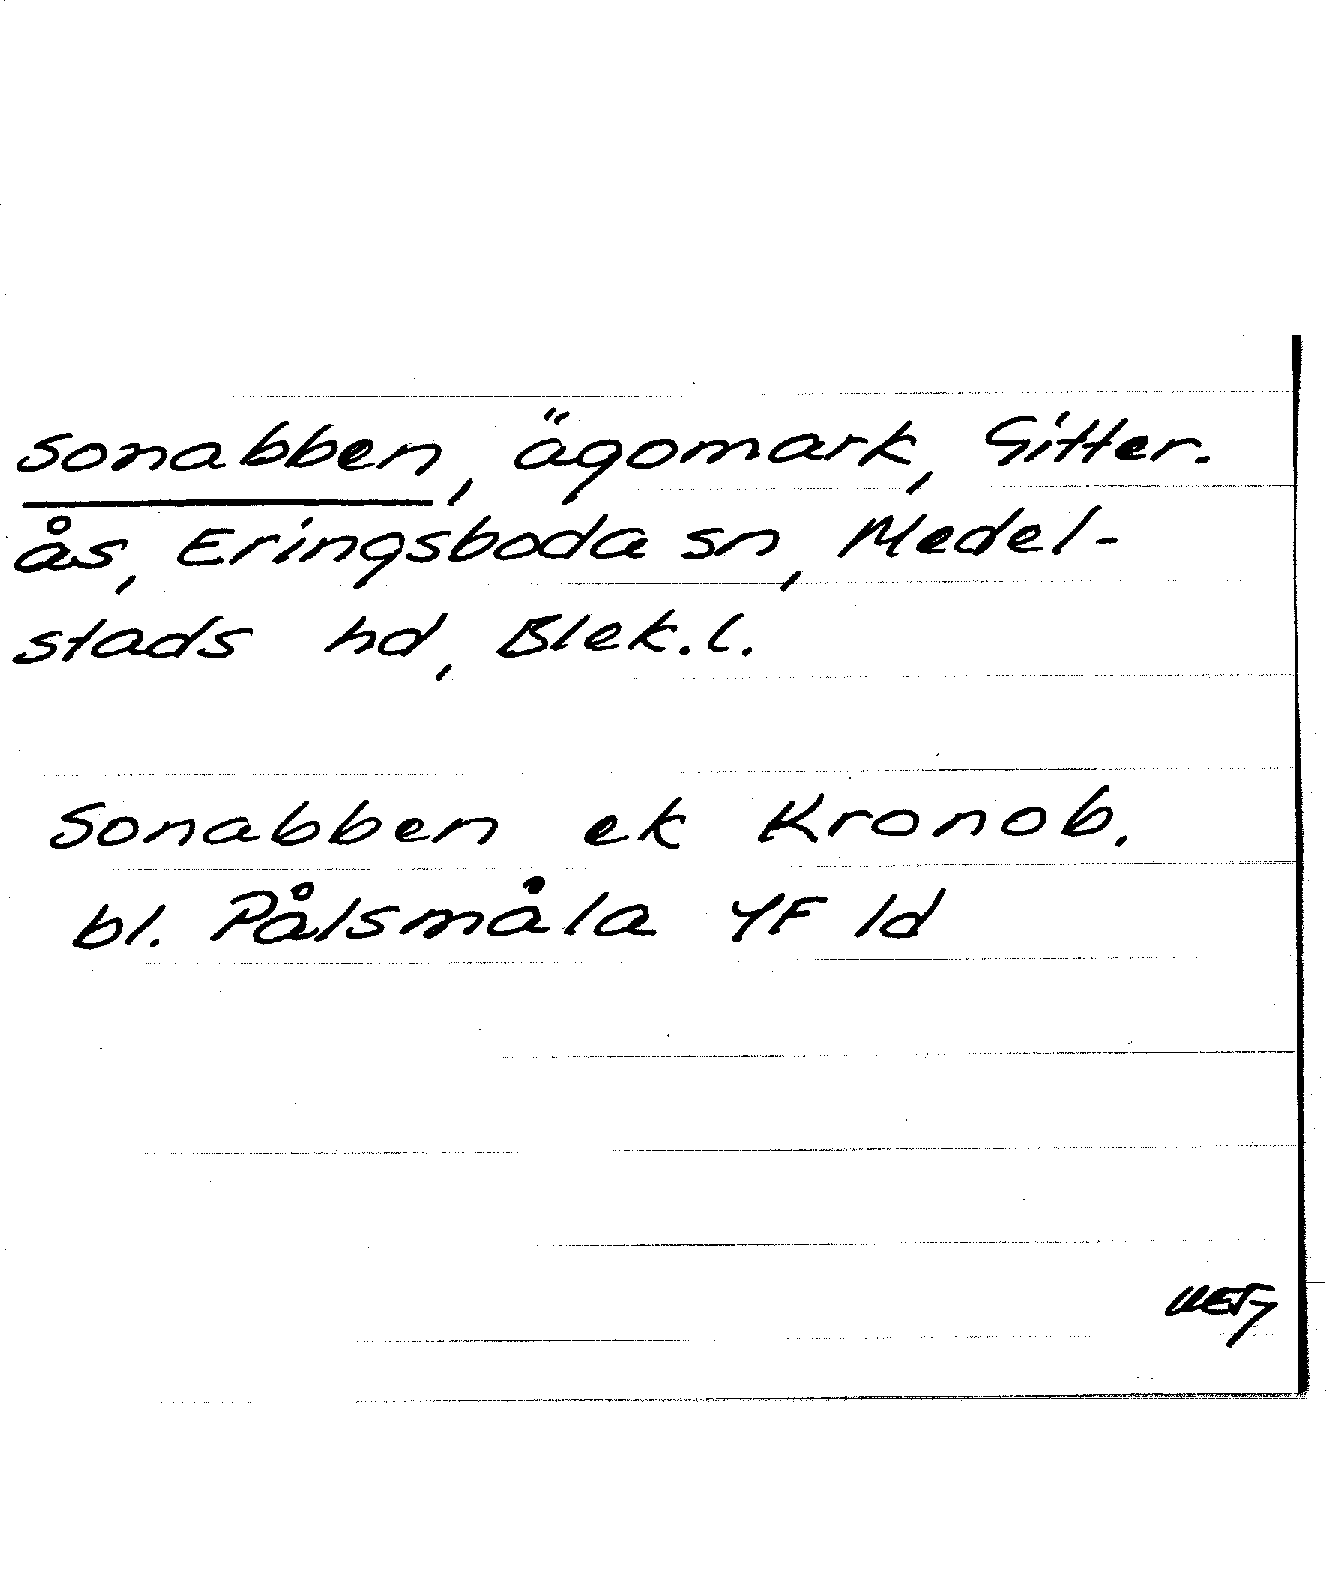 Sonabben, ägomark, Gitter-
ås, Eringsboda sn, Medel-
stads hd, Blek.l.
Sonabben ek Kronob.
bl. Pålsmåla 4F 1d